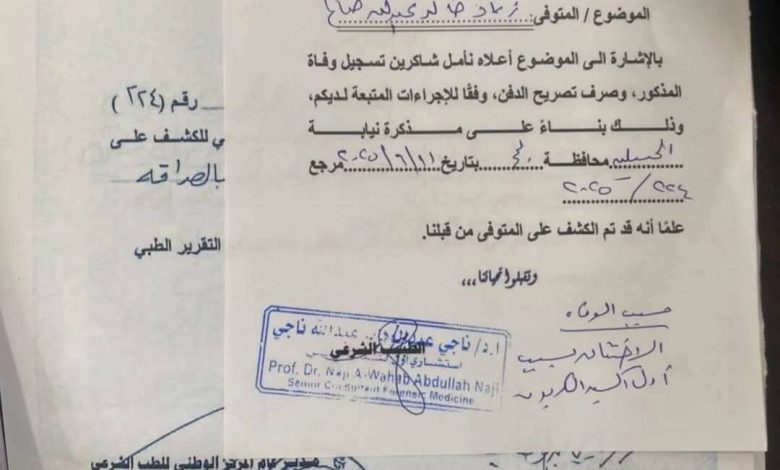 الموضوع / المتوفى: زياد خالد عبدالله صالح
بالإشارة الى الموضوع أعلاه نأمل شاكرين تسجيل وفاة
المذكور، وصرف تصريح الدفن، وفقًا للإجراءات المتبعة لديكم،
وذلك بناءً على مذكرة نيابة
محافظة بتاريخ ٢٠٢٥/٦/١١ مرجع
٢٠٢٥/٢٢٤
علمًا أنه قد تم الكشف على المتوفى من قبلنا.
وتقبلوا تحياتنا,,,
سبب الوفاة
الاختناق بسبب
أول أكسيد الكربون
الطبيب الشرعي
أ.د/ ناجي عبدالله ناجي
Prof. Dr. Naji A-Wahab Abdullah Naji
Senior Consultant Forensic Medicine
رقم (٢٢٤)
ي للكشف على
التقرير الطبي
مدير عام المركز الوطني للطب الشرعي